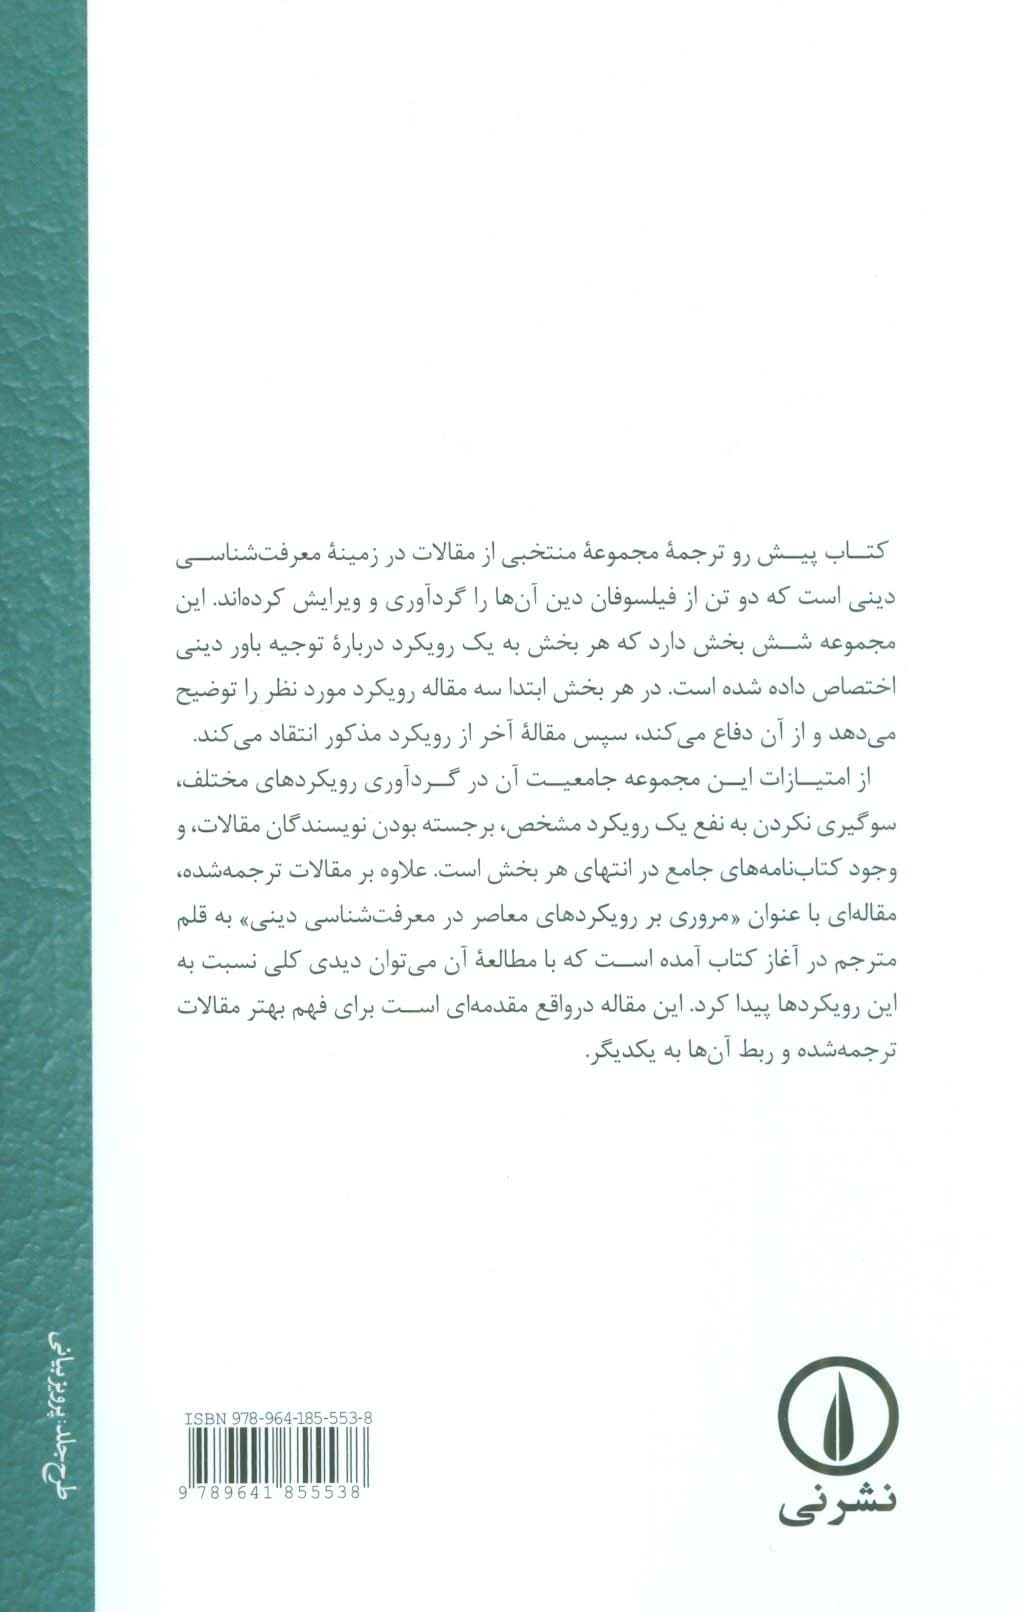 کتاب پیش رو ترجمهٔ مجموعهٔ منتخبی از مقالات در زمینهٔ معرفت‌شناسی
دینی است که دو تن از فیلسوفان دین آن‌ها را گردآوری و ویرایش کرده‌اند. این
مجموعه شش بخش دارد که هر بخش به یک رویکرد دربارهٔ توجیه باور دینی
اختصاص داده شده است. در هر بخش ابتدا سه مقاله رویکرد مورد نظر را توضیح
می‌دهد و از آن دفاع می‌کند، سپس مقالهٔ آخر از رویکرد مذکور انتقاد می‌کند.
از امتیازات این مجموعه جامعیت آن در گردآوری رویکردهای مختلف،
سوگیری نکردن به نفع یک رویکرد مشخص، برجسته بودن نویسندگان مقالات، و
وجود کتاب‌نامه‌های جامع در انتهای هر بخش است. علاوه بر مقالات ترجمه‌شده،
مقاله‌ای با عنوان «مروری بر رویکردهای معاصر در معرفت‌شناسی دینی» به قلم
مترجم در آغاز کتاب آمده است که با مطالعهٔ آن می‌توان دیدی کلی نسبت به
این رویکردها پیدا کرد. این مقاله درواقع مقدمه‌ای است برای فهم بهتر مقالات
ترجمه‌شده و ربط آن‌ها به یکدیگر.
طرح جلد: پرویز بیانی
ISBN 978-964-185-553-8
9 789641 855538
نشرنی